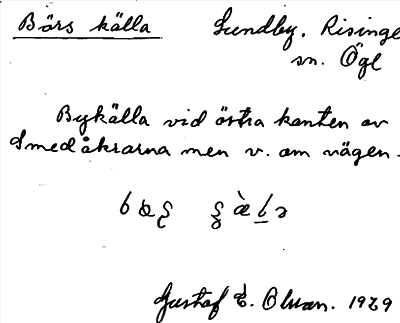 Börs källa
Lundby. Risinge
sn. Ögl
Bykälla vid östra kanten av
Smedåkrarna men v. om vägen.
Gustaf E. 1929